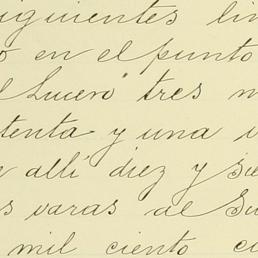 siguientes lin
o en el punto
l Lucero" tres m
tenta y una v
e alli diez y sie
s varas al Su
mil ciento c